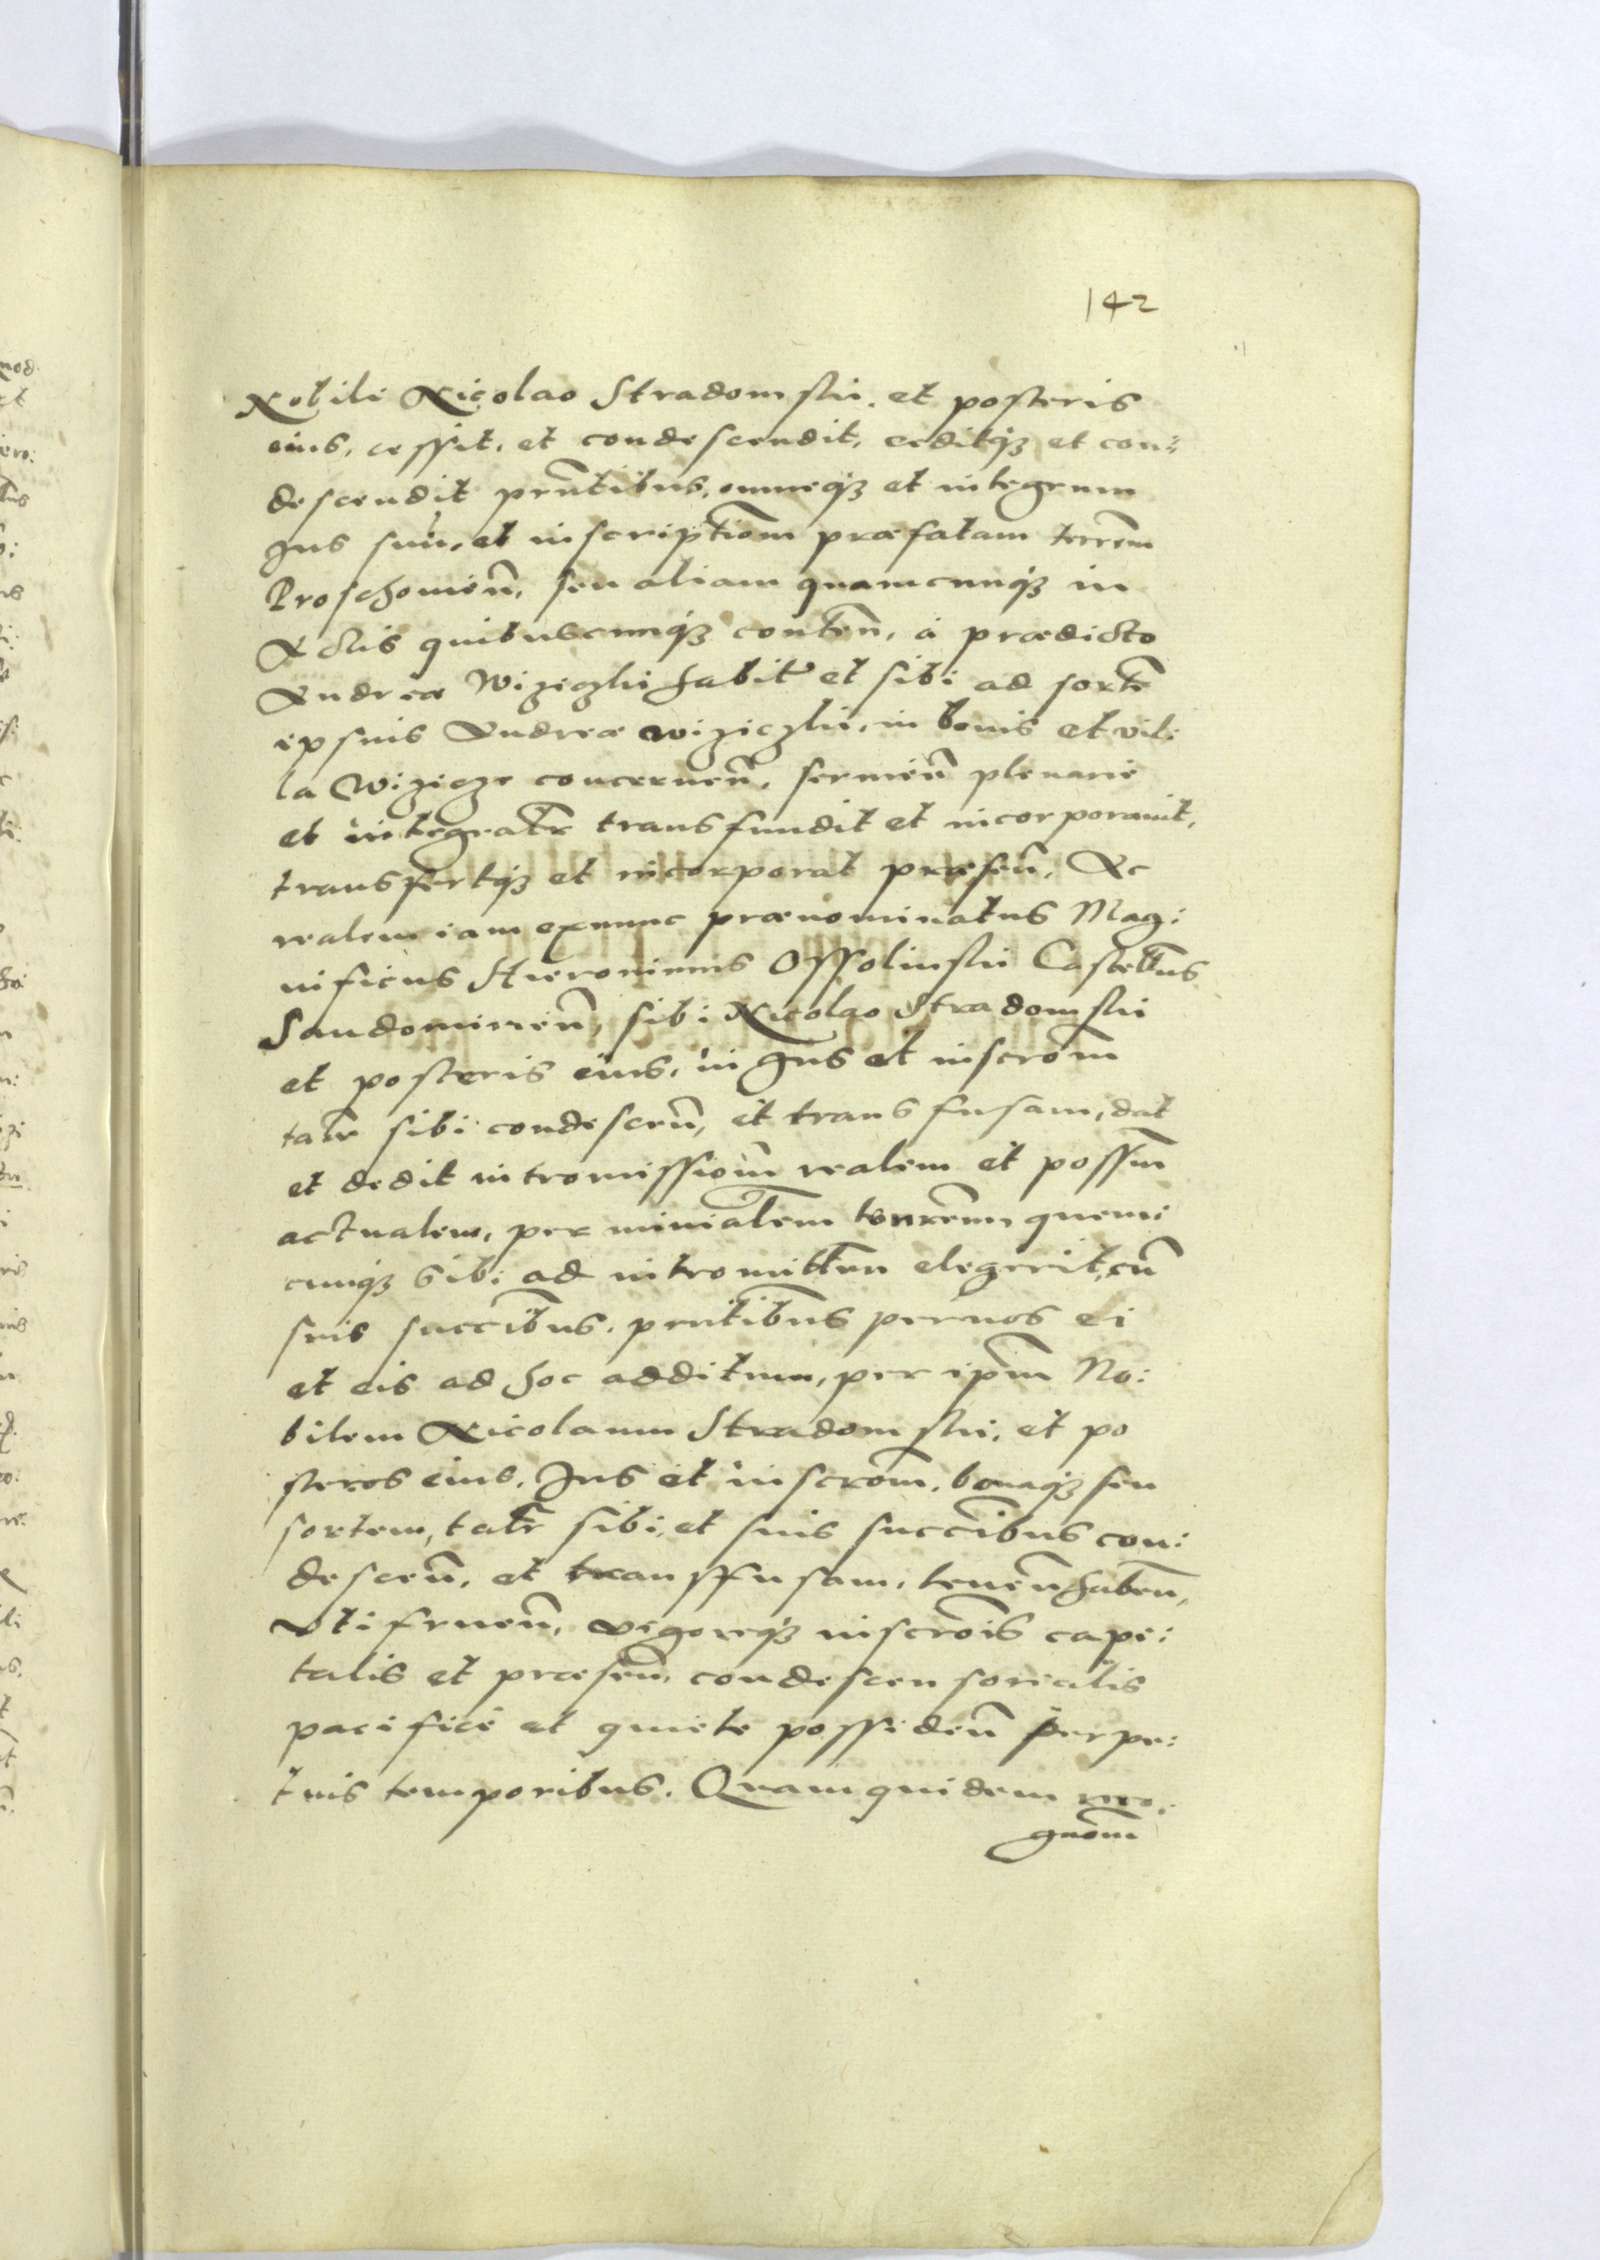 142
Nobili Nicolao Stradomski. et posteris
eius, cessit, et condescendit, ceditq3 et con:
descendit prñtibus, omneq3 et integrum
Jus suũ, et inscriptiõm præfatam terrẽm
Proschouieñ, seu aliam quamcunq3 in
Actis quibuscunq3 conteñ, à prædicto
Andrea Wiziczki habit̃ et sibi ad sortẽ
ipsuis Andreæ Wiziczki, in bonis et vil:
la Wizicze concerneñ, servieñ plenarie
et integralr̃ transfundit et incorporauit,
transfertq3 et incorporat præseñ, Ac
realem iam exnunc prænominatus Mag:
nificus Hieronimus Ossolinski Castellñus
Sandomirieñ, sibi Nicolao Stradomski
et posteris eius, in Jus et inscrõm
talr̃ sibi condesceñ, et transfusam, dat
et dedit intromissiõm realem et possm̃
actualem, per ministl̃em terrẽm quem:
cunq3 sibi ad intromitteñ elegerit, cũ
suis succr̃ibus, prñtibus per nos ei
et eis ad hoc additum, per ipm̃ No:
bilem Nicolaum Stradomski, et po
steros eius, Jus et inscrõm, bonaq3 seu
sortem, talr̃ sibi, et suis succr̃ibus con:
desceñ, et transffusam, teneñ habeñ,
vti frueñ, vigoreq3 inscrõis capi:
talis et præseñ, condescensorialis
pacifice et quiete possideñ perpe:
tuis temporibus. Quam quidem reco:
gnõm